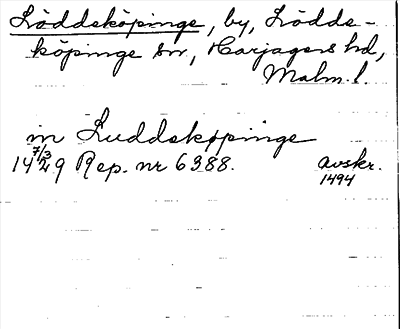 Löddeköpinge, by, Lödde-
köpinge sn, Harjagers hd,
Malm. l.
in Luddekøpinge
14 7/3 29 Rep. nr 6388. avskr.
1494